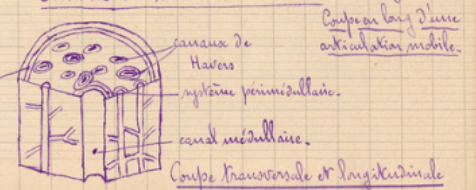 Coupe en long d'une
articulation mobile.
canaux de
Havers
système périmédullaire.
canal médullaire.
Coupe transversale et longitudinale